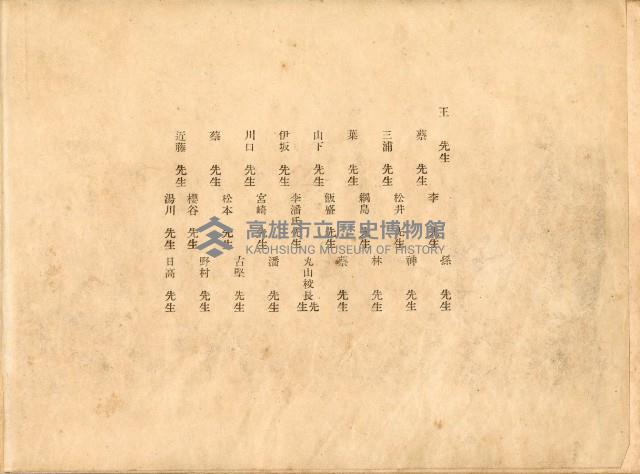 王 先生
蔡 先生
三浦 先生
葉 先生
山下 先生
伊坂 先生
川口 先生
蔡 先生
近藤 先生
李 先生
松井 先生
綱島 先生
飯盛 先生
李潘氏先生
宮崎 先生
松本 先生
櫻谷 先生
湯川 先生
孫 先生
神 先生
林 先生
蔡 先生
丸山校長先生
潘 先生
古堅 先生
野村 先生
日高 先生
高雄市立歷史博物館
KAOHSIUNG MUSEUM OF HISTORY